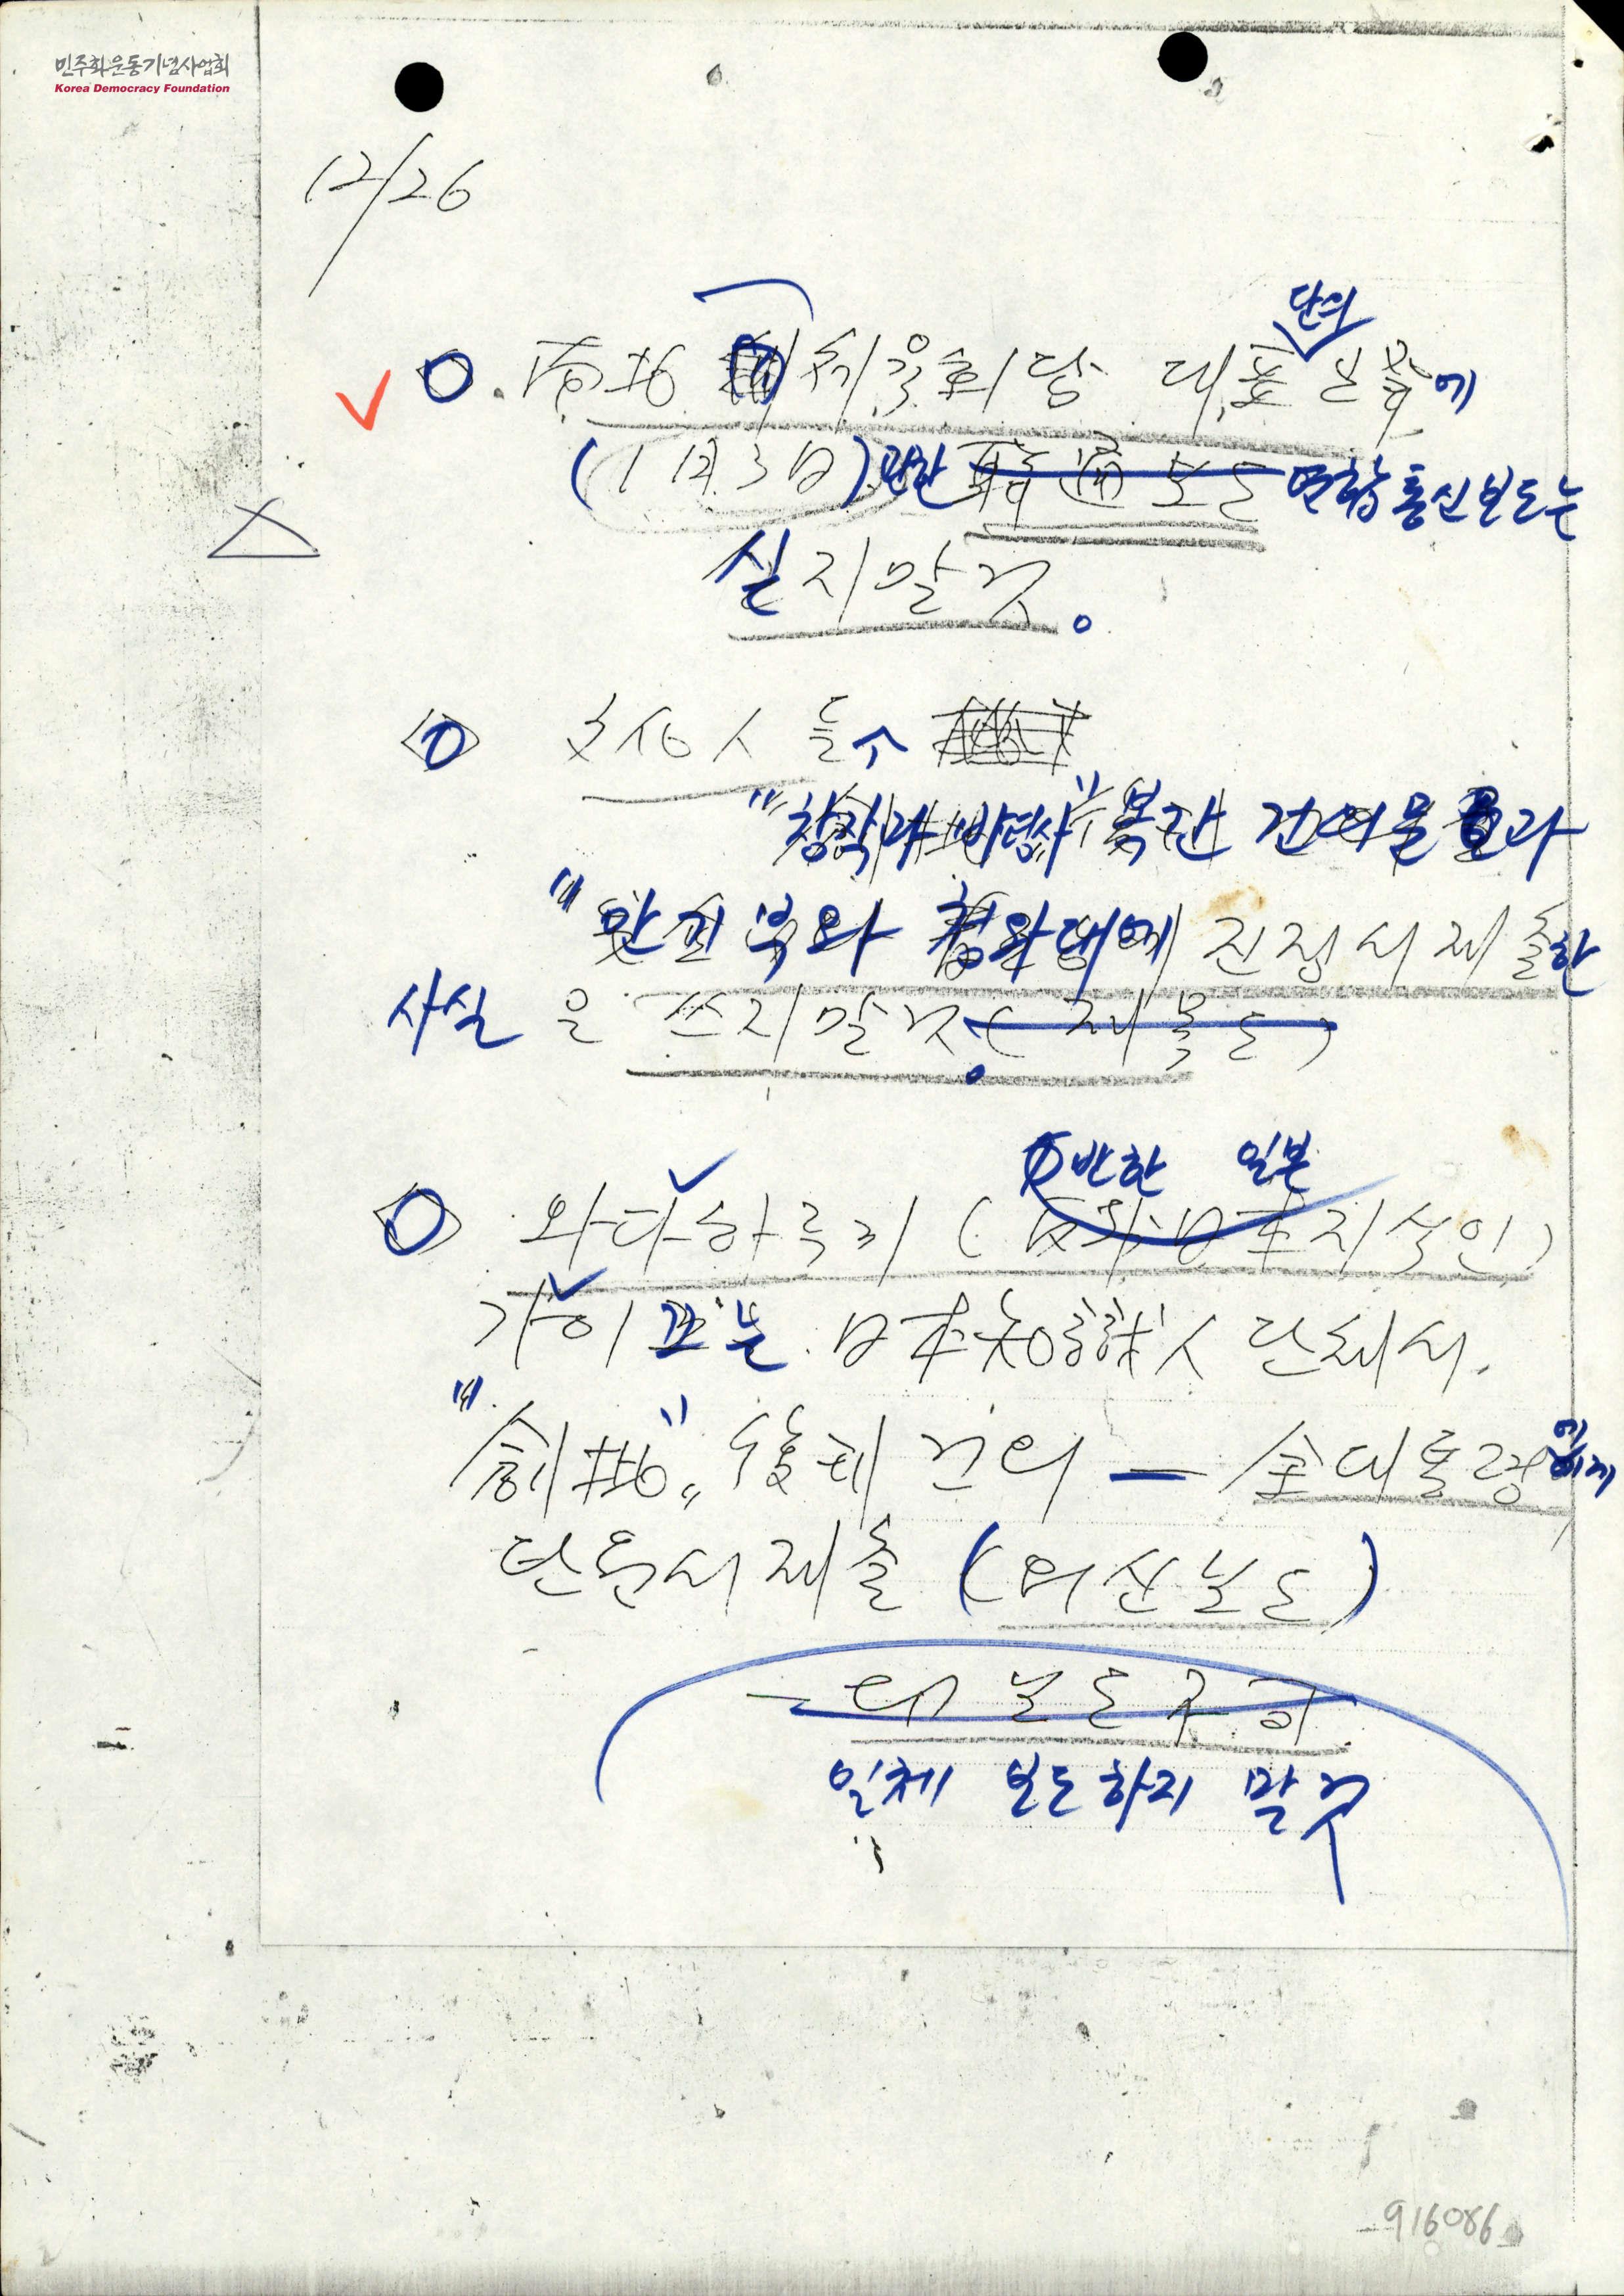 민주화운동기념사업회
Korea Democracy Foundation
12/26
단의
南北 체육회담 대표 에
(1月3日) 관한 聯通 보도 연합통신보도는
싣지말것.
文化人들
"창작과 비평사" 복간 건의문
문공부와 청와대에 진정서 제출한
사실 은 쓰지말것 (제목도)
반한 일본
와다 하루키 (反韓 日本 지식인)
가 이끄는 日本知識人 단체서.
"創批" 復刊 건의 — 全대통령에게
탄원서 제출 (외신보도)
보도
일체 보도하지 말것
916086